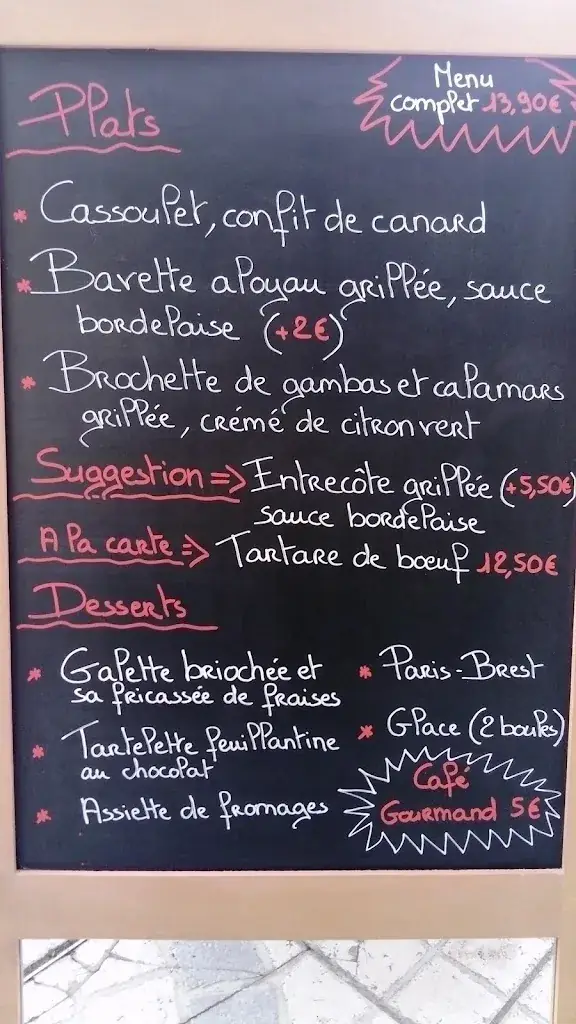 Menu
complet 13,90€
Plats
* Cassoulet, confit de canard
* Bavette aloyau grillée, sauce
bordelaise (+2€)
* Brochette de gambas et calamars
grillée, crémé de citron vert
Suggestion => Entrecôte grillée (+5,50€)
sauce bordelaise
A la carte => Tartare de bœuf 12,50€
Desserts
* Galette briochée et
sa fricassée de fraises
* Tartelette feuillantine
au chocolat
* Assiette de fromages
* Paris-Brest
* Glace (2 boules)
Café
Gourmand 5€